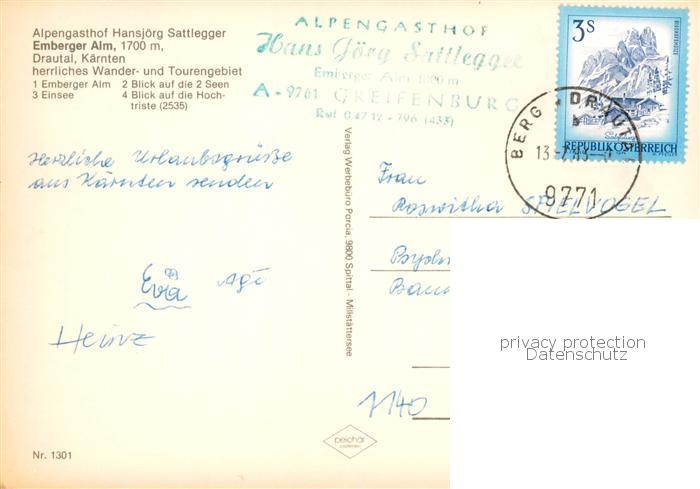 Alpengasthof Hansjörg Sattlegger
Emberger Alm, 1700 m,
Drautal, Kärnten
herrliches Wander- und Tourengebiet
1 Emberger Alm 2 Blick auf die 2 Seen
3 Einsee 4 Blick auf die Hoch-
triste (2535)
ALPENGASTHOF
Hans Jörg Sattlegger
Emberger Alm
A-9761 GREIFENBURG
Ruf 0 47 12 - 796 (433)
3S
REPUBLIK ÖSTERREICH
BERG - DRAUT
9771
Herzliche Urlaubsgrüße
aus Kärnten senden
Evia
Heinz
Verlag Werbebüro Porcia, 9800 Spittal - Millstättersee
Frau
Roswitha SPIELVOGEL
1140
privacy protection
Datenschutz
peichär
Nr. 1301